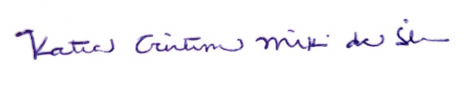 Katia Cristina Miki da Silva